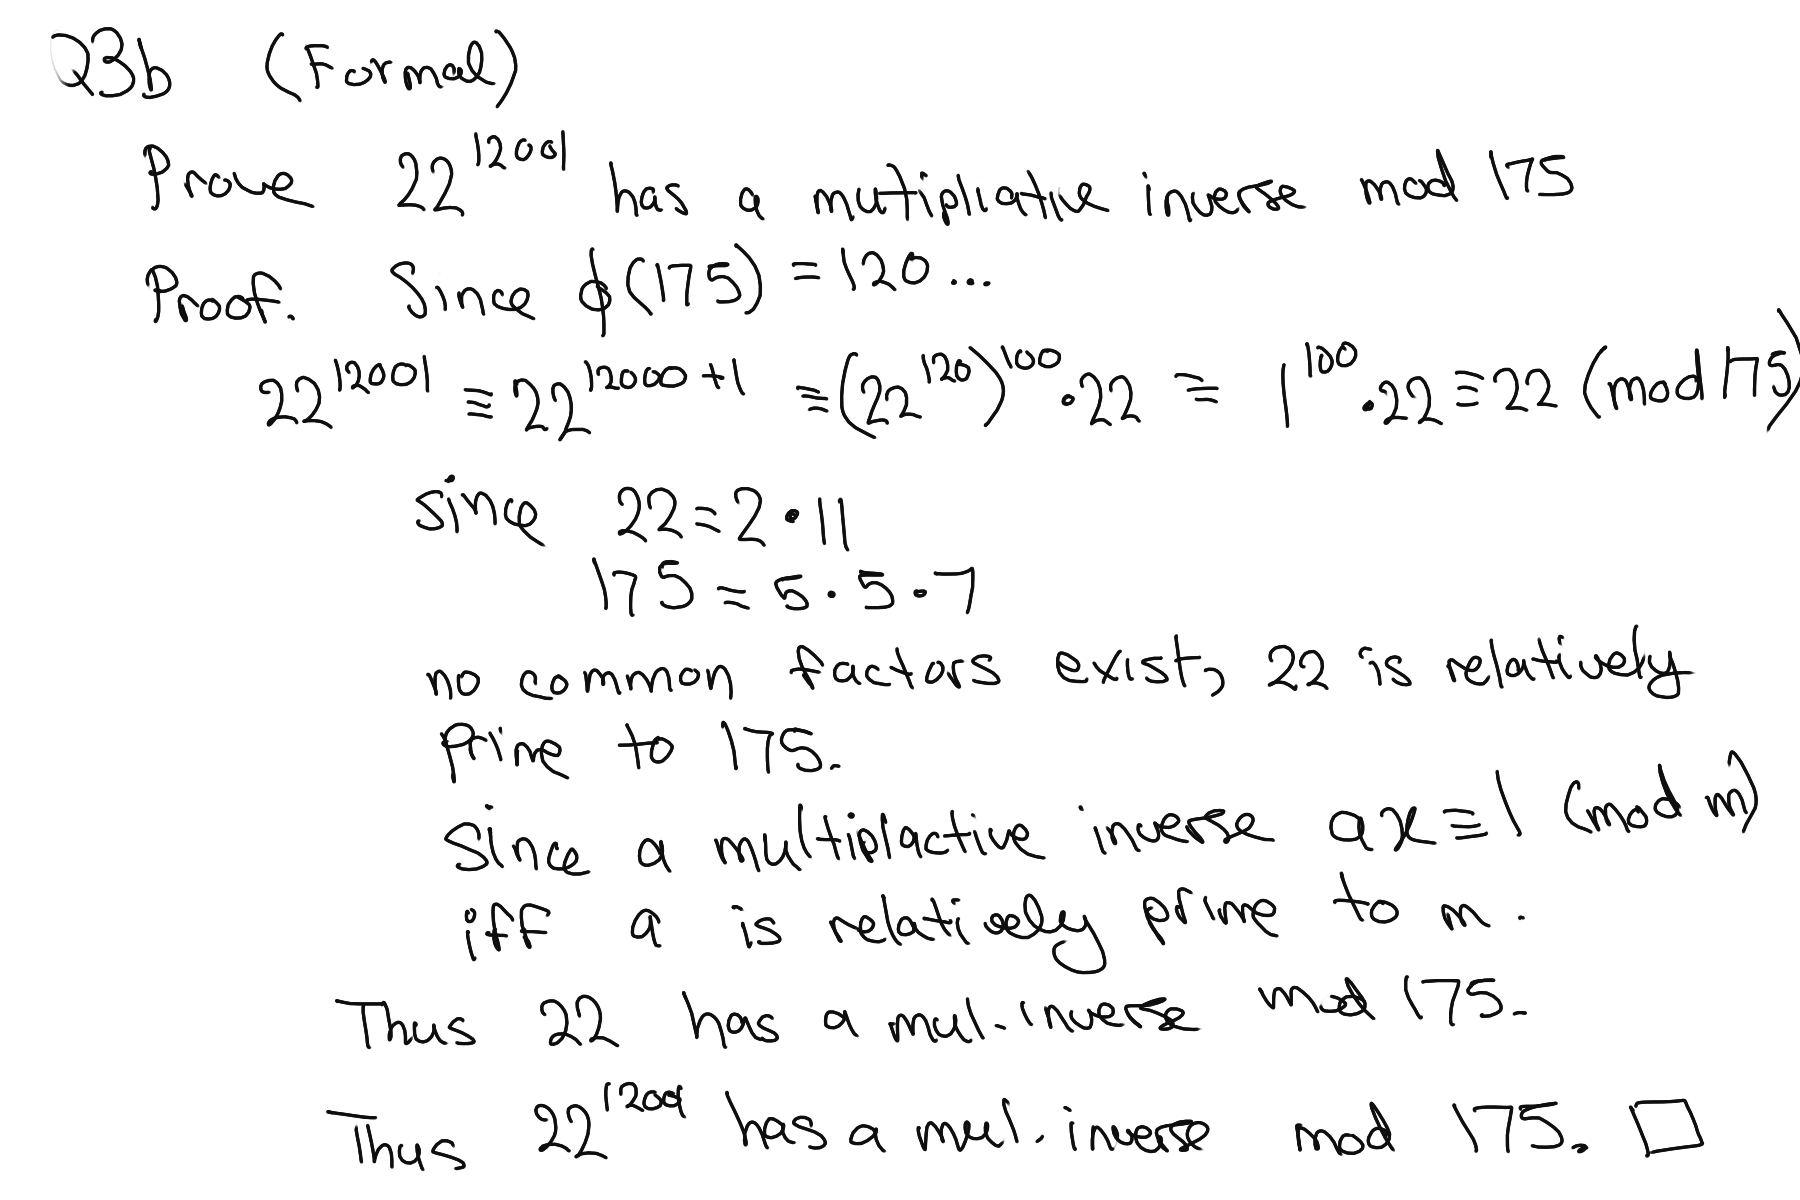 Q3b (Formal)
Prove 22^12001 has a mutiplicative inverse mod 175
Proof. Since ϕ(175) = 120 ...
22^12001 ≡ 22^12000+1 ≡ (22^120)^100 · 22 ≡ 1^100 · 22 ≡ 22 (mod 175)
since 22 = 2 · 11
175 = 5 · 5 · 7
no common factors exist, 22 is relatively
prime to 175.
Since a multiplactive inverse ax ≡ 1 (mod m)
iff a is relatively prime to m.
Thus 22 has a mul. inverse mod 175.
Thus 22^12001 has a mul. inverse mod 175. □